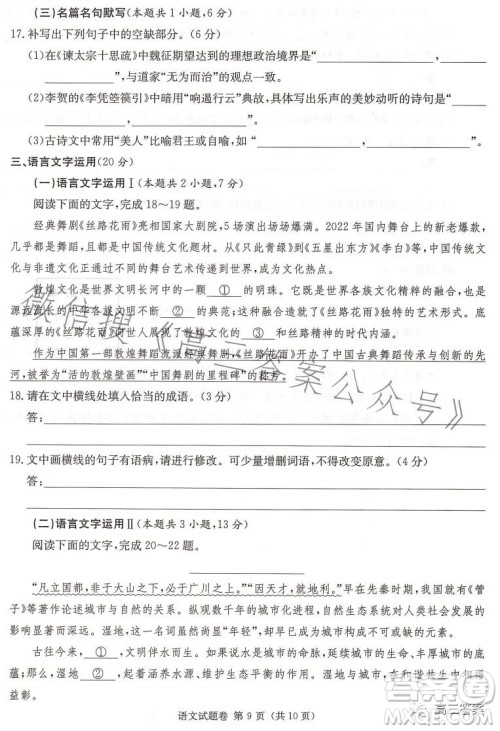 (三)名篇名句默写(本题共1小题,6分)
17.补写出下列句子中的空缺部分。(6分)
(1)在《谏太宗十思疏》中魏征期望达到的理想政治境界是“
”,与道家“无为而治”有着根本的区别。
(2)李贺的《李凭箜篌引》中暗用“响遏行云”典故,具体写出乐声的美妙动听的诗句是“
,”。
(3)古诗文中常用“美人”比喻君王或自喻,如“,”。
三、语言文字运用(20分)
(一)语言文字运用Ⅰ(本题共2小题,7分)
阅读下面的文字,完成18～19题。
经典舞剧《丝路花雨》亮相国家大剧院,5场演出场场爆满。2022年国内舞台上的新老爆款,
几乎都是舞剧,且都与中国传统文化题材有关。从《只此青绿》到《五星出东方》《李白》等,中国传
统文化正在通过各种不同的舞台艺术得到呈现。
敦煌文化是世界文明长河中的一颗①的明珠。它既是世界各族文化精粹的融合,也是
源远流长的中华文明②的典范;这部《丝路花雨》不仅具有独特的艺术魅力,而且以丰富、底
蕴深厚的《丝路花雨》向世人展现了敦煌文化③的时代内涵。
作为中国第一部敦煌舞蹈流派经典舞剧,《丝路花雨》开办了中国古典舞蹈传承与创新的先
河,被誉为“活的敦煌壁画”“中国舞剧的里程碑”的称号。
18.请在文中横线处填入恰当的成语。(3分)
答:
19.文中画横线的句子有语病,请进行修改。可少量增删词语,不得改变原意。(4分)
答:
(二)语言文字运用Ⅱ(本题共3小题,13分)
阅读下面的文字,完成20～22题。
“凡立国都,非于大山之下,必于广川之上。”“因天才,就地利。”早在先秦时期,我国就有《管
子》等著作论述城市与自然的关系。纵观数千年的城市化进程,城市与自然、人类社会与自然的
影响日益深远。湿地,这一名词虽然尚显“年轻”,却切切实实地滋养着城市。
古往今来,①,湿地一直与城市、与人类发展息息相关。它如母亲,以水哺育万物生
灵;又如卫士,湿地②,维护生态平衡的作用。湿地是极富生产力的生态系统,蕴含着丰富
语文试题卷 第9页(共10页)
微信搜《高三答案公众号》
高三答案